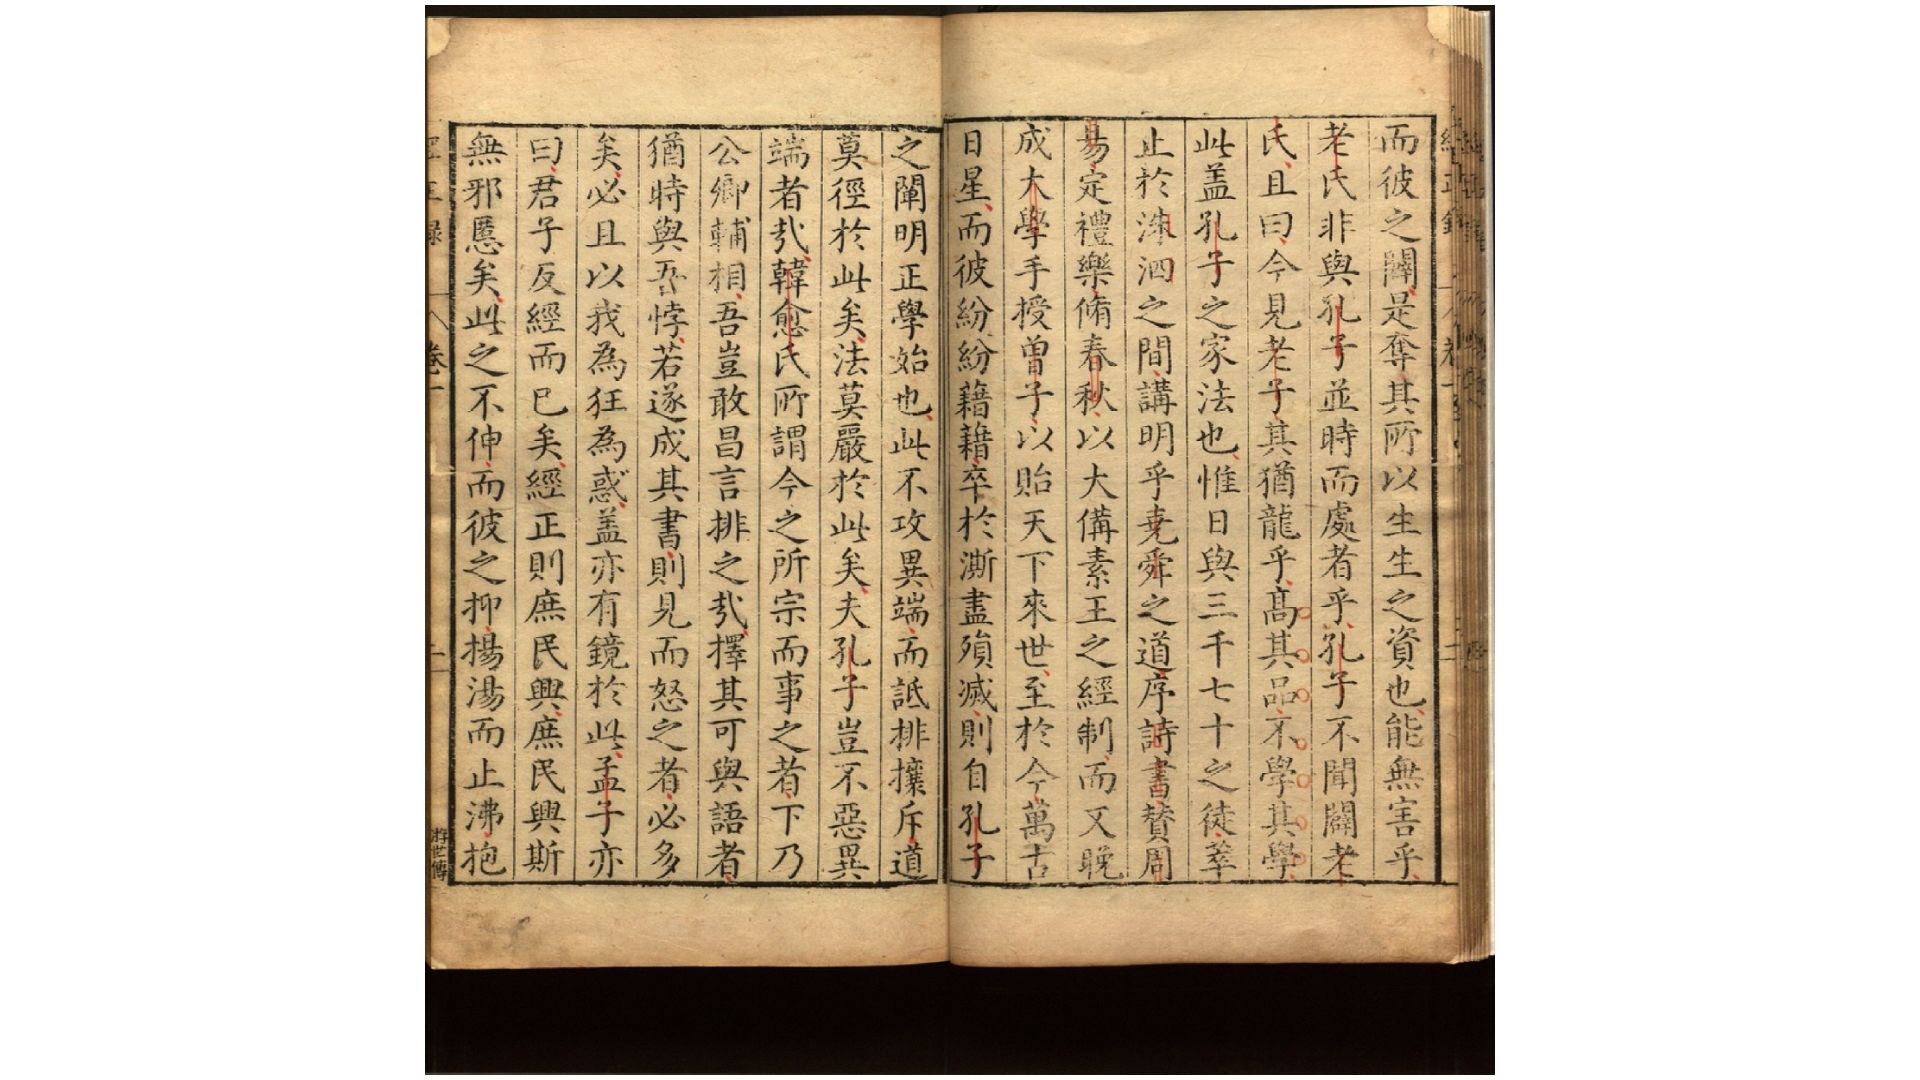 而彼之闢是奪其所以生生之資也能無害乎
老氏非與孔子並時而處者乎孔子不聞闢老
氏且曰今見老子其猶龍乎高其品不學其學
此盖孔子之家法也惟日與三千七十之徒萃
止於洙泗之間講明乎堯舜之道序詩書贊周
易定禮樂脩春秋以大備素王之經制而又晚
成大學手授曾子以貽天下來世至於今萬古
日星而彼紛紛藉藉卒於澌盡殞滅則自孔子
之闡明正學始也此不攻異端而詆排攘斥道
莫徑於此矣法莫嚴於此矣夫孔子豈不惡異
端者㢤韓愈氏所謂今之所宗而事之者下乃
公卿輔相吾豈敢昌言排之㢤擇其可與語者
猶時與吾悖若遂成其書則見而怒之者必多
矣必且以我為狂為惑盖亦有鏡於此孟子亦
曰君子反經而已矣經正則庶民興庶民興斯
無邪慝矣此之不伸而彼之抑揚湯而止沸抱
卷一
二
游世傳